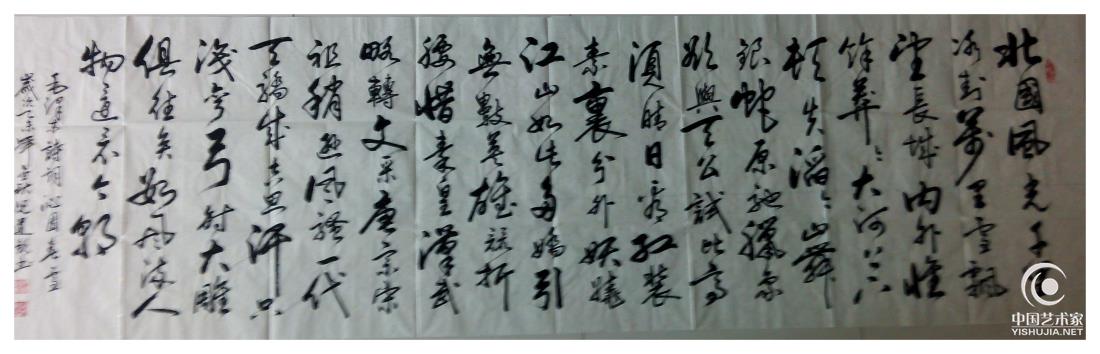 北國風光千里
冰封萬里雪飄
望長城内外惟
餘莽〻大河上下
頓失滔〻山舞
銀蛇原馳臘象
欲與天公試比高
須晴日看紅裝
素裹分外妖嬈
江山如此多嬌引
無數英雄競折
腰惜秦皇漢武
略輸文采唐宗宋
祖稍遜風騷一代
天驕成吉思汗只
識彎弓射大雕
俱往矣數風流人
物還看今朝
毛澤東詩詞沁園春雪
歲次乙未年
中国艺术家
YISHUJIA.NET